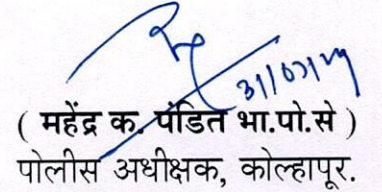 ( महेंद्र क. पंडित भा.पो.से )
पोलीस अधीक्षक, कोल्हापूर.